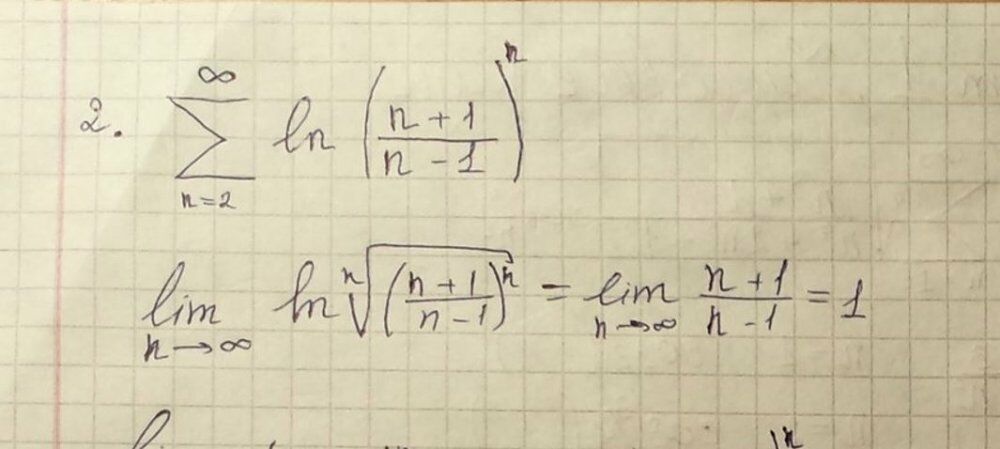 2. ∑_{n=2}^{∞} ln ((n+1)/(n-1))^n
lim_{n→∞} ln ⁿ√(((n+1)/(n-1))^n) = lim_{n→∞} (n+1)/(n-1) = 1